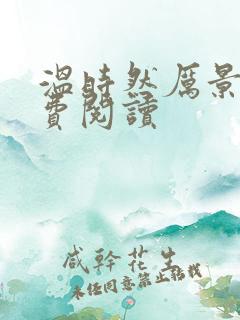 温時然厲景
費閱讀
咸幹花生
未经同意禁止转载